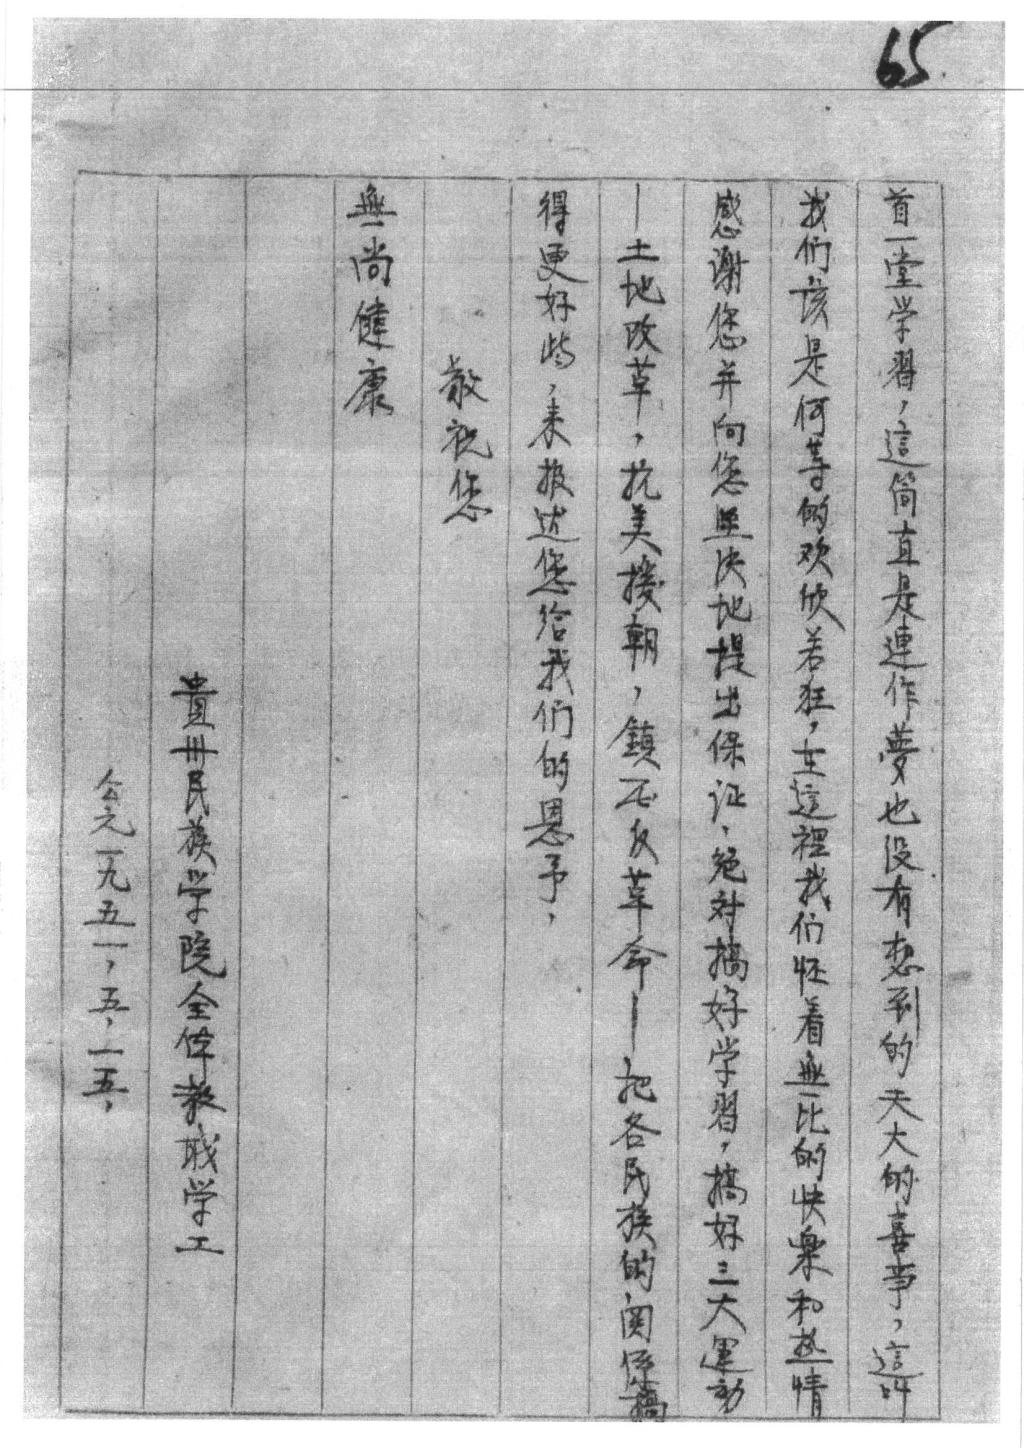 65
首一堂学習，這简直是連作夢也没有想到的天大的喜事，這叫
我们该是何等的欢欣若狂，在這裡我们怀着無比的快樂和热情
感谢您并向您坚决地提出保证、绝对搞好学習，搞好三大運动
—土地改革，抗美援朝，鎮压反革命—把各民族的関係搞
得更好些，来报达您给我们的恩予，
敬祝您
無尚健康
貴州民族学院全体教职学工
公元一九五一，五，一五，